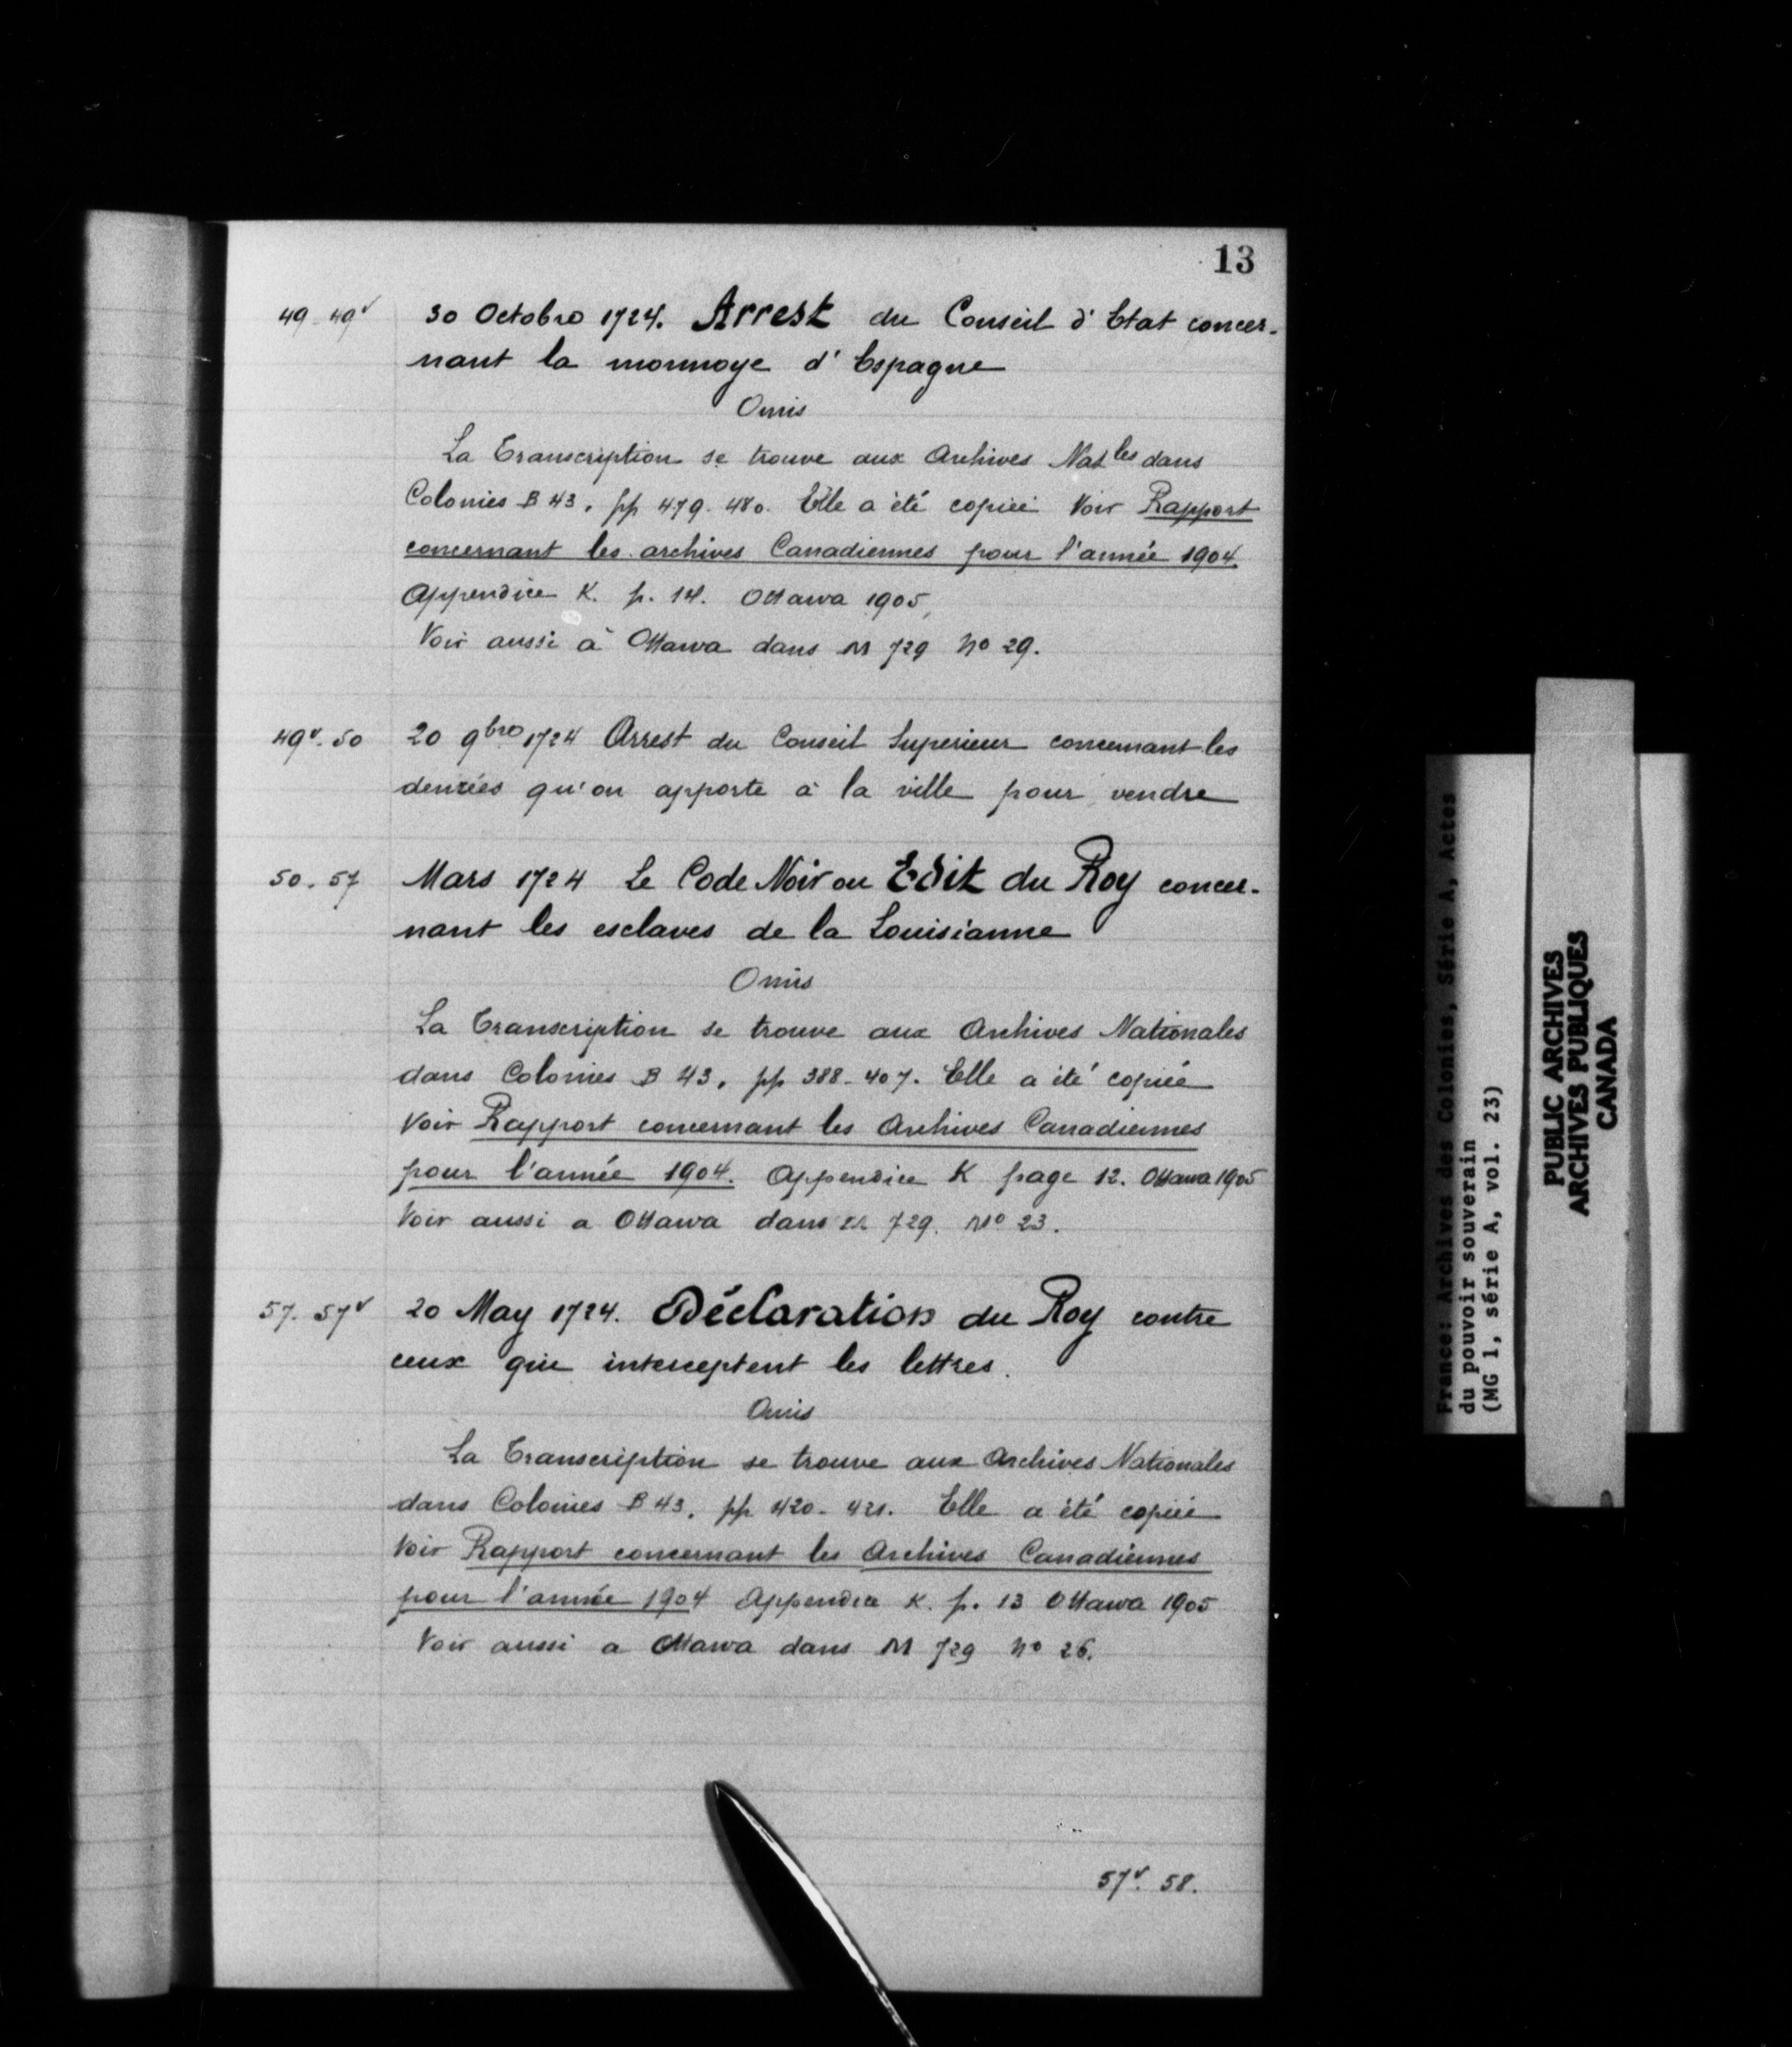 13
49-49v 30 Octobre 1724. Arrest du Conseil d'Etat concer-
nant la monnoye d'Espagne
Omis
La Transcription se trouve aux Archives Natles dans
Colonies B 43, pp 479-480. Elle a été copiée Voir Rapport
concernant les archives Canadiennes pour l'année 1904.
Appendice K. p. 14. Ottawa 1905,
Voir aussi à Ottawa dans M 729 No 29.
49v-50 20 9bre 1724 Arrest du Conseil Superieur concernant les
denrées qu'on apporte à la ville pour vendre
50-57 Mars 1724 Le Code Noir ou Edit du Roy concer-
nant les esclaves de la Louisianne
Omis
La Transcription se trouve aux Archives Nationales
dans Colonies B 43, pp 388-407. Elle a été copiée
Voir Rapport concernant les Archives Canadiennes
pour l'année 1904. Appendice K page 12. Ottawa 1905
Voir aussi a Ottawa dans M 729. No 23.
57-57v 20 May 1724. Déclaration du Roy contre
ceux qui interceptent les lettres.
Omis
La Transcription se trouve aux Archives Nationales
dans Colonies B 43, pp 420-421. Elle a été copiée
Voir Rapport concernant les Archives Canadiennes
pour l'année 1904 Appendice K. p. 13 Ottawa 1905
Voir aussi a Ottawa dans M 729 No 26.
57v. 58.
France: Archives des Colonies, Série A, Actes
du pouvoir souverain
(MG 1, série A, vol. 23)
PUBLIC ARCHIVES
ARCHIVES PUBLIQUES
CANADA